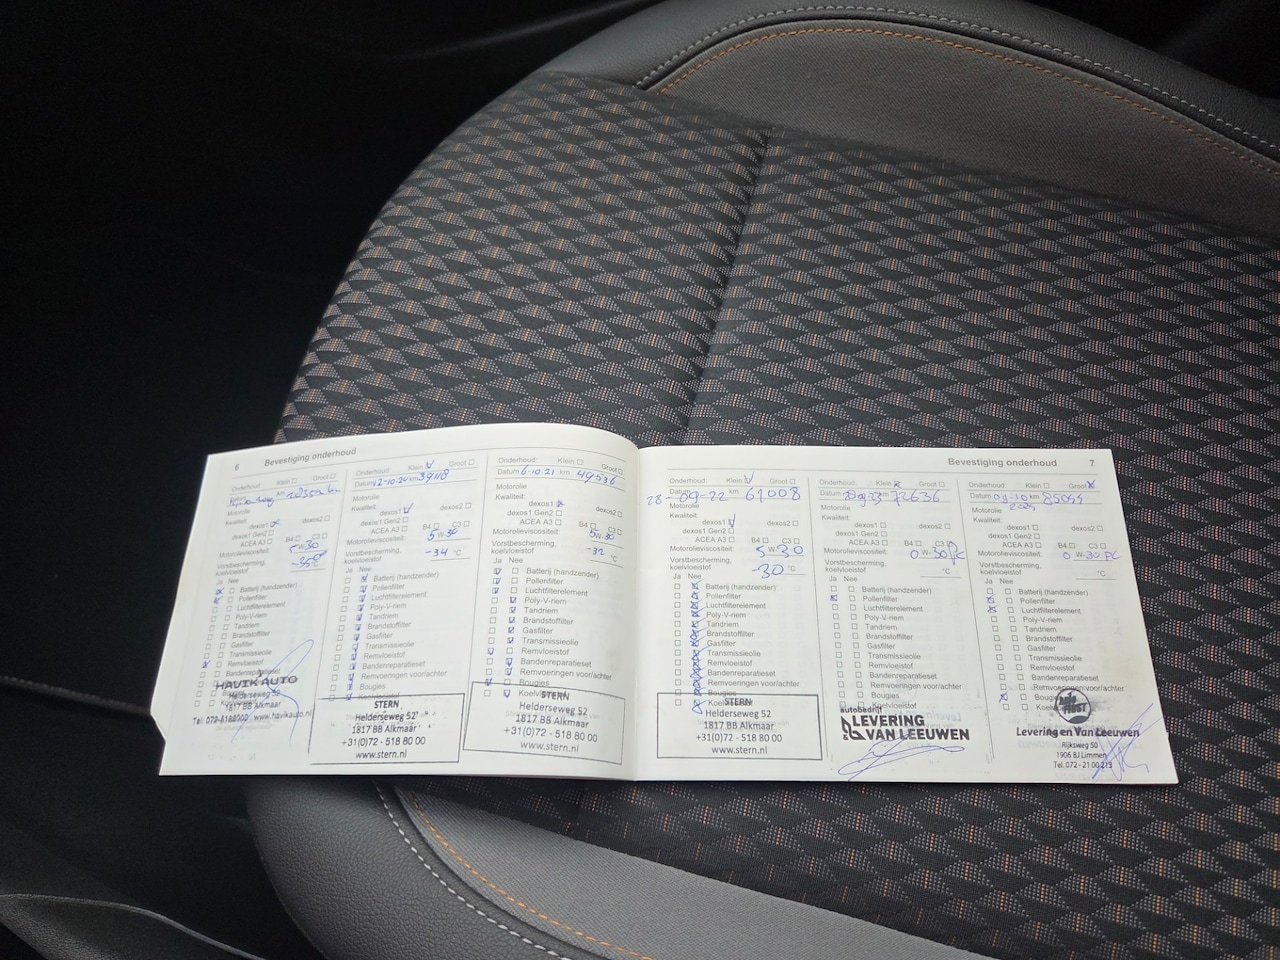 6 Bevestiging onderhoud
Onderhoud: Klein Groot
km
Motorolie
Kwaliteit:
dexos1 dexos2
dexos1 Gen2
ACEA A3 B4 C3
Motorolieviscositeit: 5W-30
Vorstbescherming,
koelvloeistof -35°C
Ja Nee
Batterij (handzender)
Pollenfilter
Luchtfilterelement
Poly-V-riem
Tandriem
Brandstoffilter
Gasfilter
Transmissieolie
Remvloeistof
Bandenreparatieset
HAVIK AUTO
Helderseweg 52
1817 BB Alkmaar
Tel. 072-5188000 www.havikauto.nl
Onderhoud: Klein V Groot
Datum 12-10-20 km 39118
Motorolie
Kwaliteit:
dexos1 dexos2
dexos1 Gen2
ACEA A3 B4 C3
Motorolieviscositeit: 5W-30
Vorstbescherming,
koelvloeistof -34 °C
Ja Nee
Batterij (handzender)
Pollenfilter
Luchtfilterelement
Poly-V-riem
Tandriem
Brandstoffilter
Gasfilter
Transmissieolie
Remvloeistof
Bandenreparatieset
Remvoeringen voor/achter
Bougies
STERN
Helderseweg 52
1817 BB Alkmaar
+31(0)72 - 518 80 00
www.stern.nl
Onderhoud: Klein Groot
Datum 6-10-21 km 49536
Motorolie
Kwaliteit:
dexos1 dexos2
dexos1 Gen2
ACEA A3 B4 C3
Motorolieviscositeit: 5W-30
Vorstbescherming,
koelvloeistof °C
Ja Nee
Batterij (handzender)
Pollenfilter
Luchtfilterelement
Poly-V-riem
Tandriem
Brandstoffilter
Gasfilter
Transmissieolie
Remvloeistof
Bandenreparatieset
Remvoeringen voor/achter
Bougies
STERN
Helderseweg 52
1817 BB Alkmaar
+31(0)72 - 518 80 00
www.stern.nl
Bevestiging onderhoud 7
Onderhoud: Klein V Groot
Datum 28-09-22 km 61008
Motorolie
Kwaliteit:
dexos1 dexos2
dexos1 Gen2
ACEA A3 B4 C3
Motorolieviscositeit: 5W-30
Vorstbescherming,
koelvloeistof -30 °C
Ja Nee
Batterij (handzender)
Pollenfilter
Luchtfilterelement
Poly-V-riem
Tandriem
Brandstoffilter
Gasfilter
Transmissieolie
Remvloeistof
Bandenreparatieset
Remvoeringen voor/achter
Bougies
STERN
Helderseweg 52
1817 BB Alkmaar
+31(0)72 - 518 80 00
www.stern.nl
Onderhoud: Klein Groot
Datum km 72636
Motorolie
Kwaliteit:
dexos1 dexos2
dexos1 Gen2
ACEA A3 B4 C3
Motorolieviscositeit: 0W-30
Vorstbescherming,
koelvloeistof °C
Ja Nee
Batterij (handzender)
Pollenfilter
Luchtfilterelement
Poly-V-riem
Tandriem
Brandstoffilter
Gasfilter
Transmissieolie
Remvloeistof
Bandenreparatieset
Remvoeringen voor/achter
Bougies
Koelvloeistof
autobedrijf
LEVERING
& VAN LEEUWEN
Onderhoud: Klein Groot X
Datum 09-10 km
2024
Motorolie
Kwaliteit:
dexos1 dexos2
dexos1 Gen2
ACEA A3 B4 C3
Motorolieviscositeit: 0W-30 PC
Vorstbescherming,
koelvloeistof °C
Ja Nee
Batterij (handzender)
Pollenfilter
Luchtfilterelement
Poly-V-riem
Tandriem
Brandstoffilter
Gasfilter
Transmissieolie
Remvloeistof
Bandenreparatieset
Remvoeringen voor/achter
Levering en Van Leeuwen
Rijksweg 50
1906 BJ Limmen
Tel. 072 - 21 00 213